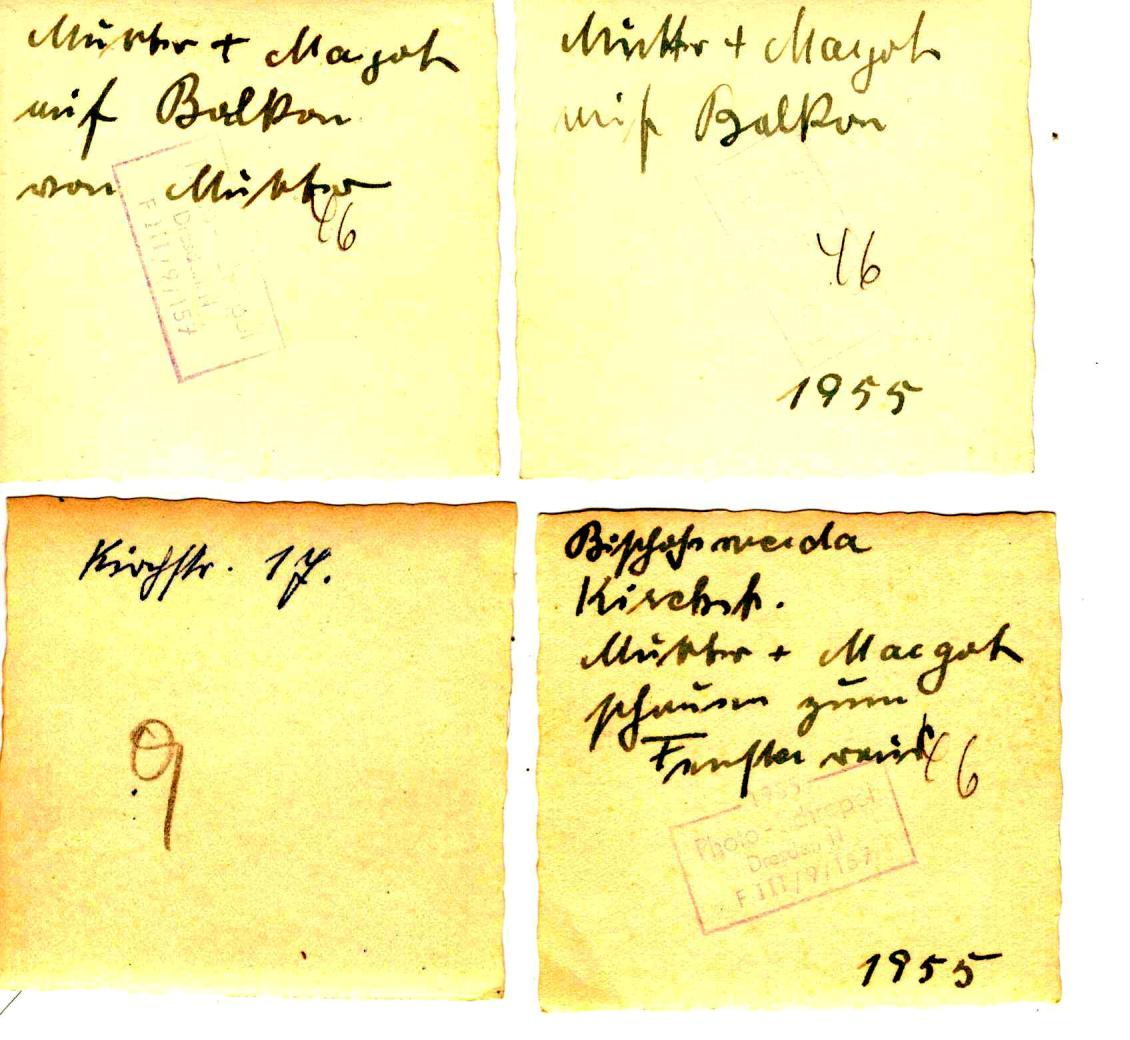 Mutter + Magot
auf Balkon
von Mutter
46
F III/9/157
Mutter + Margot
auf Balkon
46
1955
Kirchstr. 17.
9
Bischofswerda
Kirchstr.
Mutter + Margot
schauen zum
Fenster raus
46
1955
Photo-
Dresden N
F III/9/157
1955